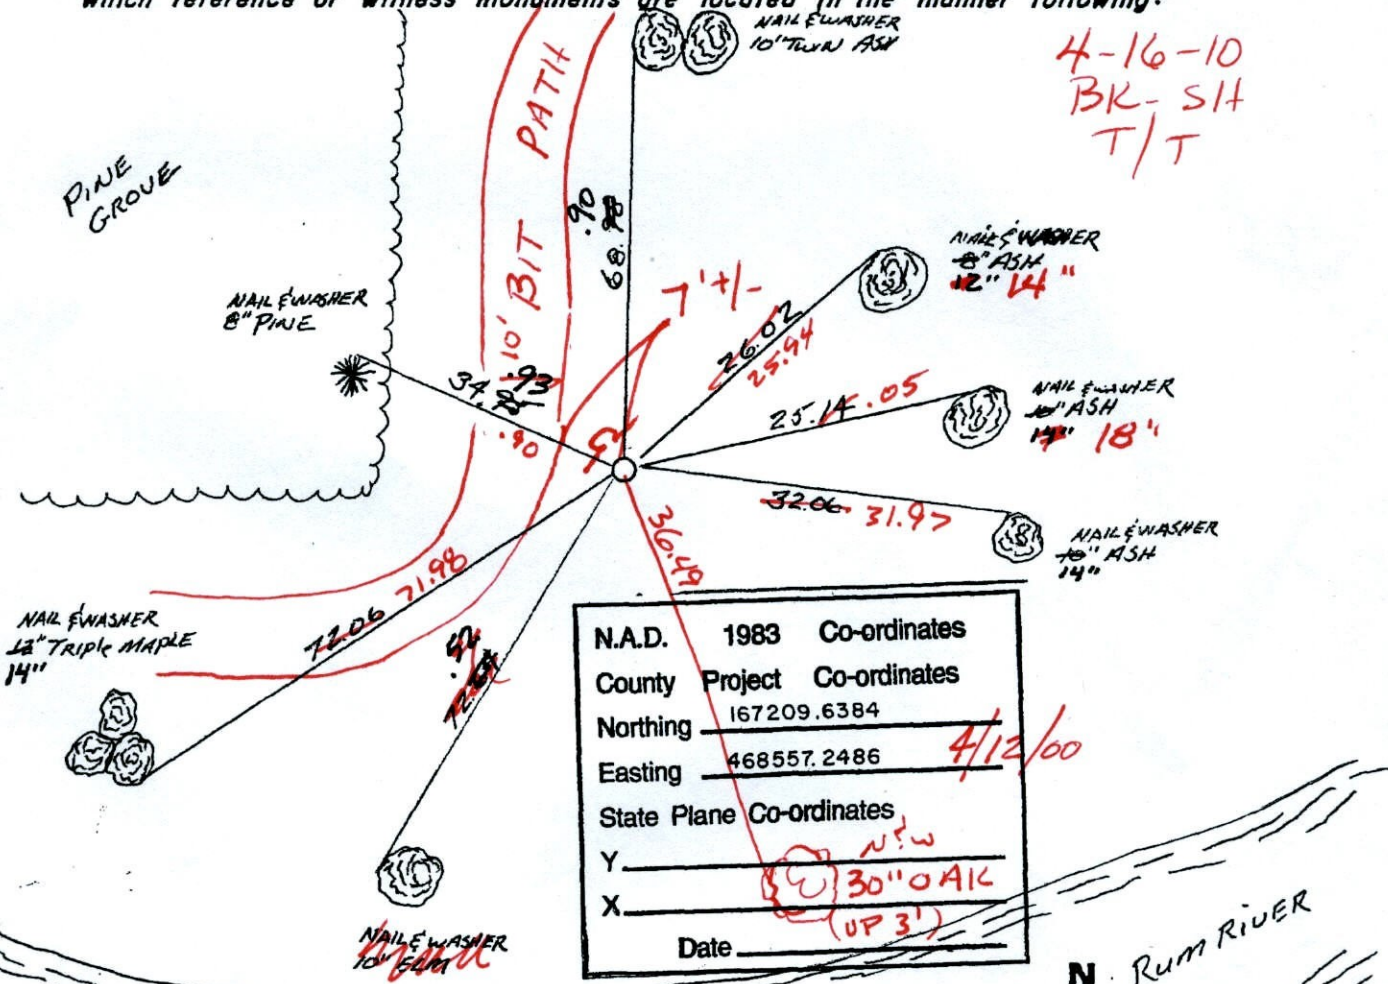 which reference or witness monuments are located in the manner following:
NAIL & WASHER
10" TWIN ASH
4-16-10
BK- SH
T/T
PINE
GROVE
10' BIT PATH
.90
68.
NAIL & WASHER
8" ASH
12" 14"
NAIL & WASHER
8" PINE
7'+/-
26.02
25.94
34.
.93
.90
25.14 .05
NAIL & WASHER
10" ASH
14" 18"
32.06 31.97
NAIL & WASHER
10" ASH
14"
36.49
72.06 71.98
NAIL & WASHER
12" TRIPLE MAPLE
14"
.52
72.
N.A.D. 1983 Co-ordinates
County Project Co-ordinates
Northing 167209.6384
Easting 468557.2486
4/12/00
State Plane Co-ordinates
Y
X
N & W
30" OAK
(UP 3')
Date
NAIL & WASHER
10" ELM
N
RUM RIVER